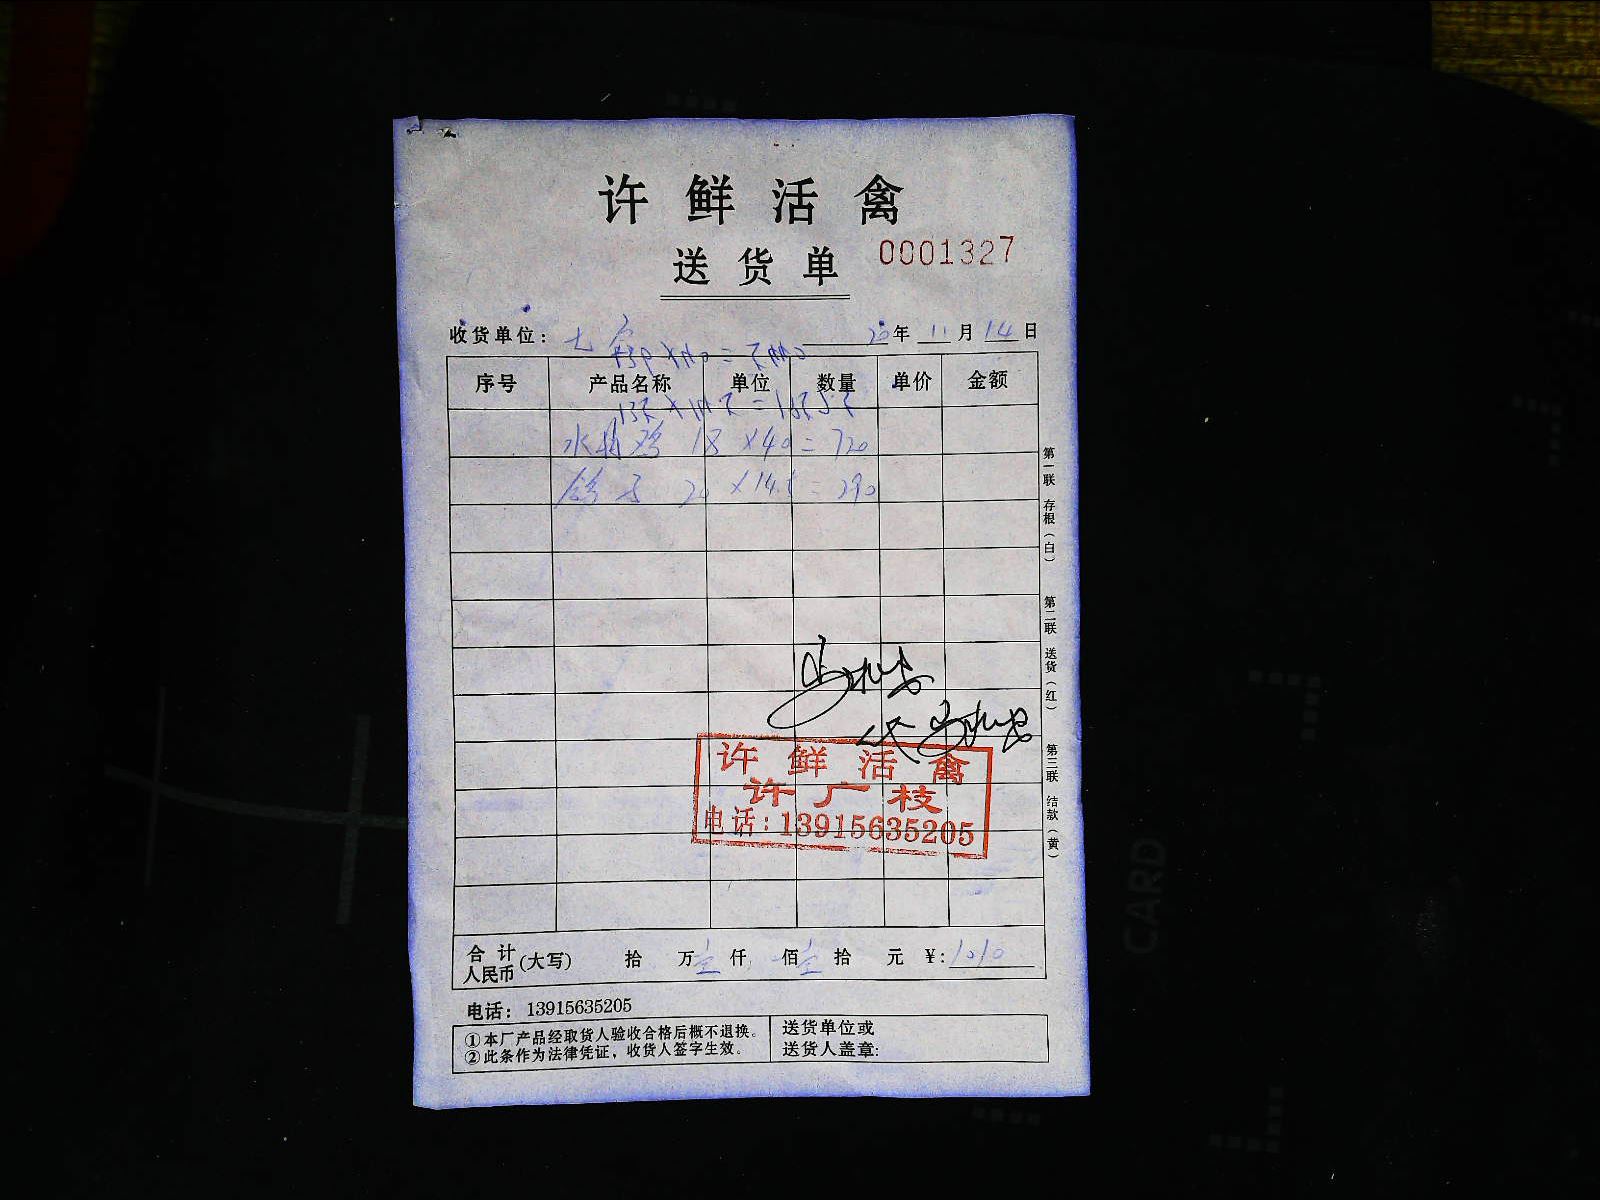 许鲜活禽
送货单 0001327
收货单位: 七 20年 11月 14日
序号 产品名称 单位 数量 单价 金额
水 鸡 18 ×40 = 720
鸽子 20 ×14.5 = 290
第一联 存根(白)
第二联 送货(红)
第三联 结款(黄)
代
许鲜活禽
许广枝
电话:13915635205
合计人民币(大写) 拾 万 壹仟 佰 壹拾 元 ¥:1010
电话: 13915635205
①本厂产品经取货人验收合格后概不退换。
②此条作为法律凭证，收货人签字生效。
送货单位或
送货人盖章:
CARD